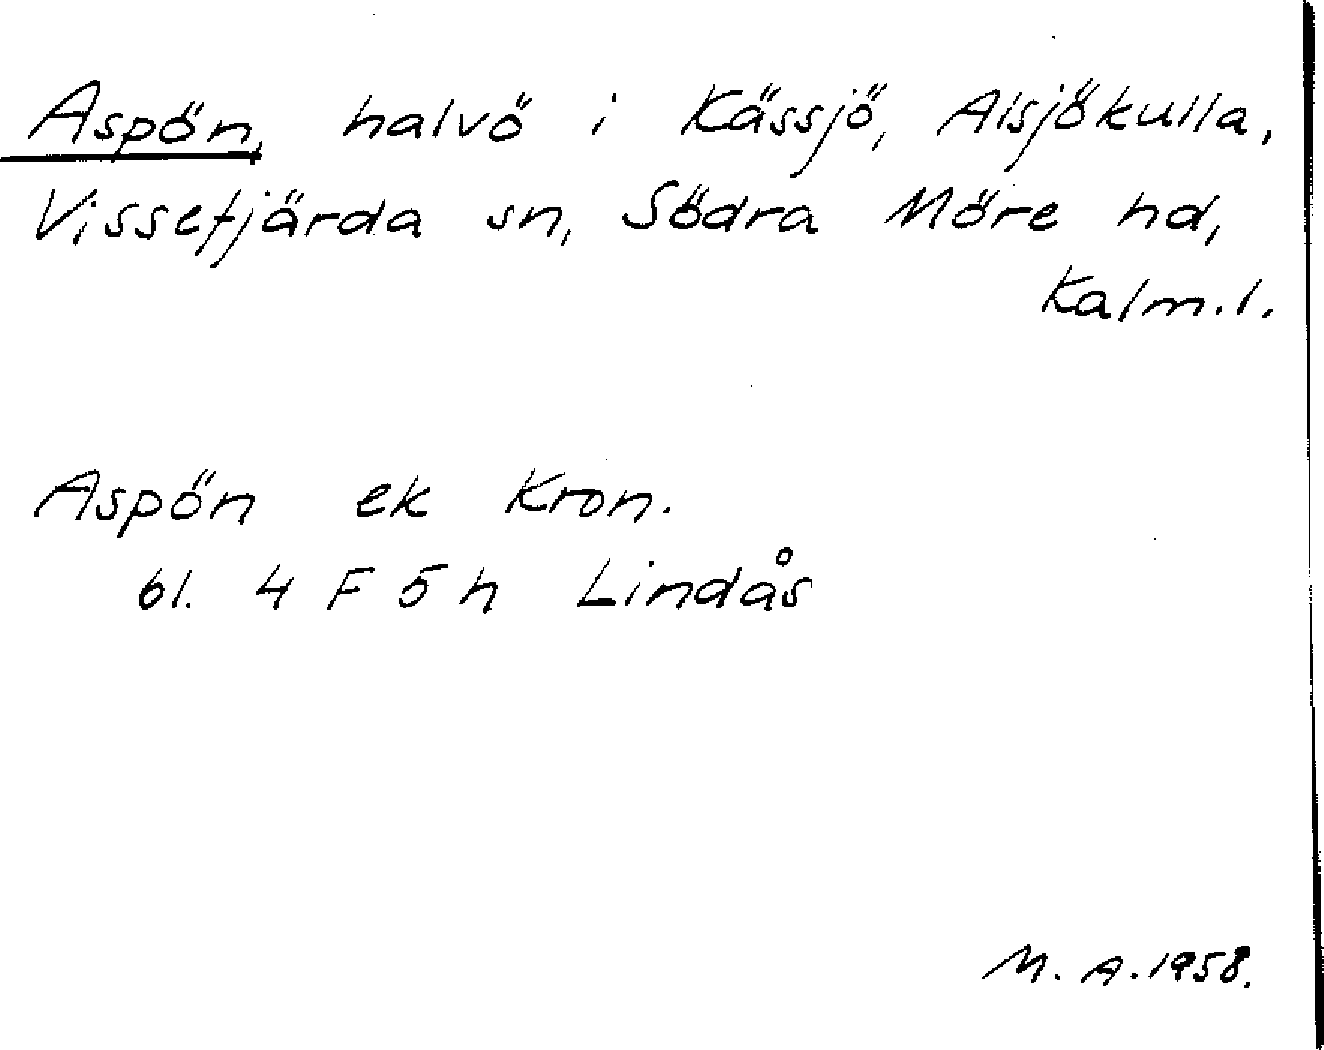 Aspön, halvö i Kässjö, Alsjökulla,
Vissefjärda sn, Södra Möre hd,
Kalm.l.
Aspön ek Kron.
bl. 4 F 5 h Lindås
M. A. 1958.